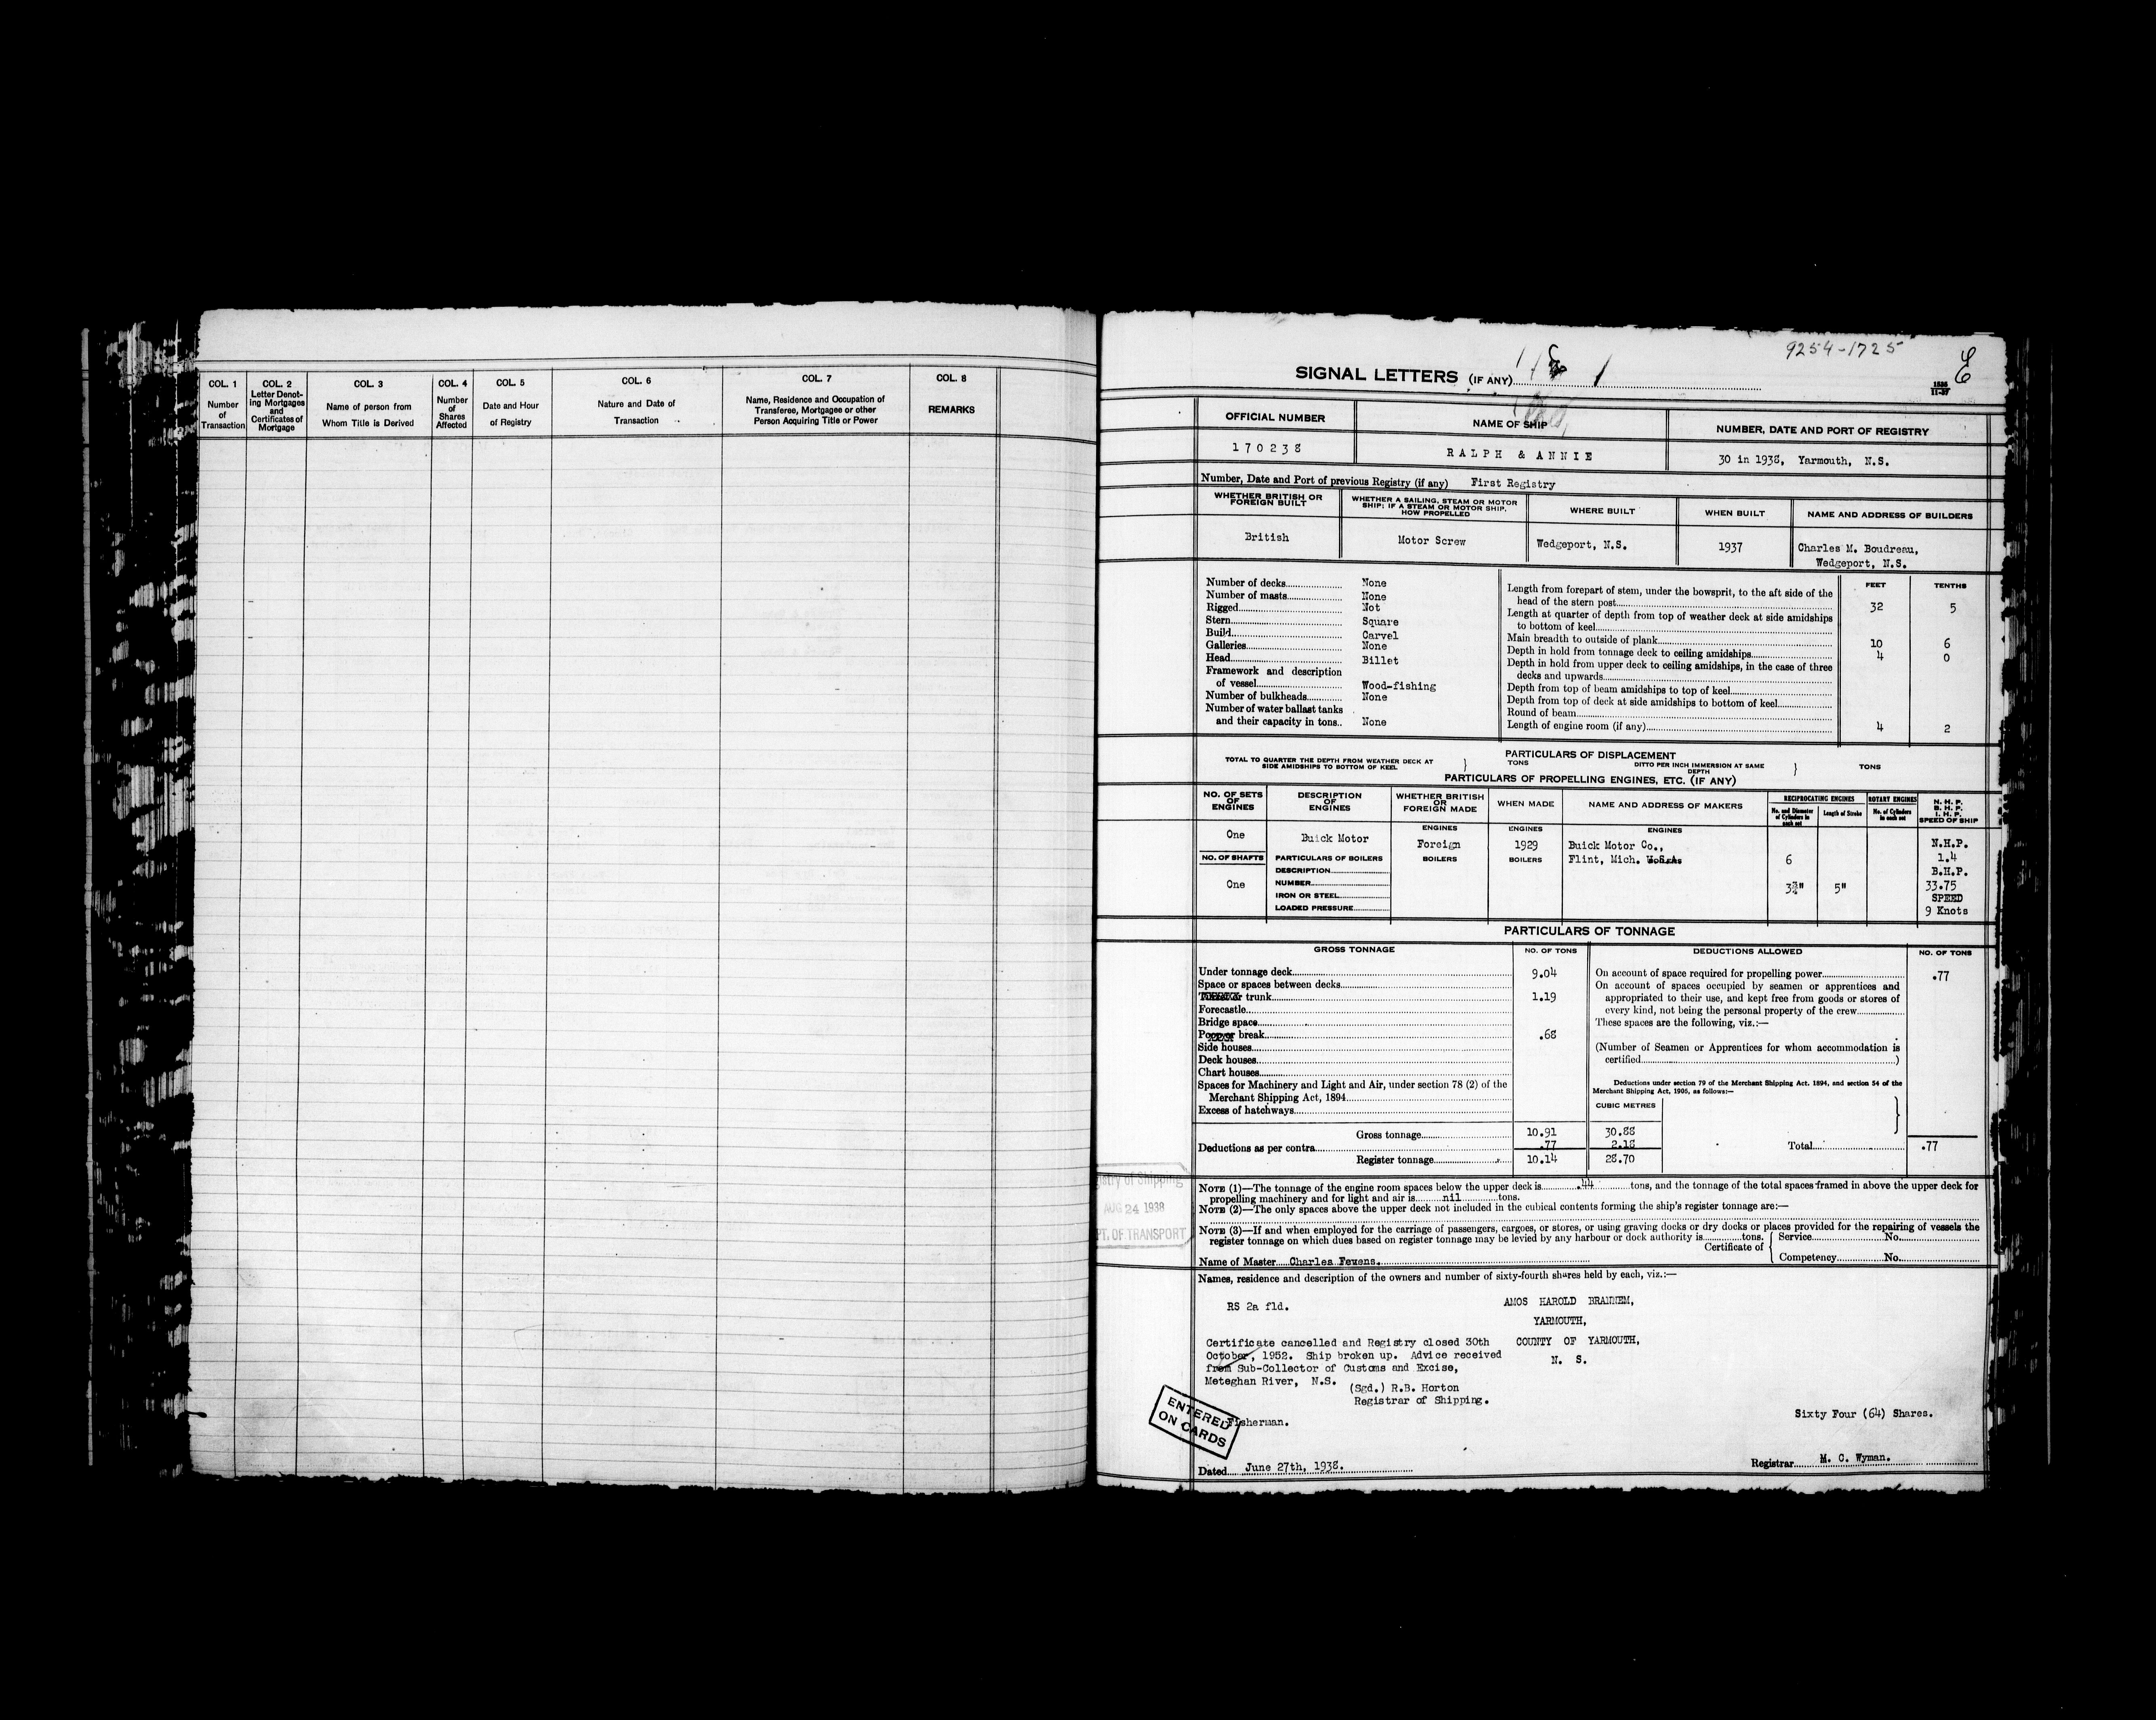 COL. 1
Number
of
Transaction
COL. 2
Letter Denot-
ing Mortgages
and
Certificates of
Mortgage
COL. 3
Name of person from
Whom Title is Derived
COL. 4
Number
of
Shares
Affected
COL. 5
Date and Hour
of Registry
COL. 6
Nature and Date of
Transaction
COL. 7
Name, Residence and Occupation of
Transferee, Mortgagee or other
Person Acquiring Title or Power
COL. 8
REMARKS
9254-1725
SIGNAL LETTERS (IF ANY)
1536
11-37
OFFICIAL NUMBER
NAME OF SHIP
NUMBER, DATE AND PORT OF REGISTRY
170238
RALPH & ANNIE
30 in 1938, Yarmouth, N.S.
Number, Date and Port of previous Registry (if any) First Registry
WHETHER BRITISH OR
FOREIGN BUILT
WHETHER A SAILING, STEAM OR MOTOR
SHIP; IF A STEAM OR MOTOR SHIP,
HOW PROPELLED
WHERE BUILT
WHEN BUILT
NAME AND ADDRESS OF BUILDERS
British
Motor Screw
Wedgeport, N.S.
1937
Charles M. Boudreau,
Wedgeport, N.S.
Number of decks None
Number of masts None
Rigged Not
Stern Square
Build Carvel
Galleries None
Head Billet
Framework and description
of vessel Wood-fishing
Number of bulkheads None
Number of water ballast tanks
and their capacity in tons.. None
FEET TENTHS
Length from forepart of stem, under the bowsprit, to the aft side of the
head of the stern post 32 5
Length at quarter of depth from top of weather deck at side amidships
to bottom of keel
Main breadth to outside of plank 10 6
Depth in hold from tonnage deck to ceiling amidships 4 0
Depth in hold from upper deck to ceiling amidships, in the case of three
decks and upwards
Depth from top of beam amidships to top of keel
Depth from top of deck at side amidships to bottom of keel
Round of beam
Length of engine room (if any) 4 2
PARTICULARS OF DISPLACEMENT
TOTAL TO QUARTER THE DEPTH FROM WEATHER DECK AT
SIDE AMIDSHIPS TO BOTTOM OF KEEL
TONS
DITTO PER INCH IMMERSION AT SAME
DEPTH
TONS
PARTICULARS OF PROPELLING ENGINES, ETC. (IF ANY)
NO. OF SETS
OF
ENGINES
DESCRIPTION
OF
ENGINES
WHETHER BRITISH
OR
FOREIGN MADE
WHEN MADE
NAME AND ADDRESS OF MAKERS
RECIPROCATING ENGINES
No. and Diameter
of Cylinders in
each set
Length of Stroke
ROTARY ENGINES
No. of Cylinders
in each set
N. H. P.
B. H. P.
I. H. P.
SPEED OF SHIP
One
Buick Motor
ENGINES
Foreign
ENGINES
1929
ENGINES
Buick Motor Co.,
Flint, Mich. U.S.A.
NO. OF SHAFTS
One
PARTICULARS OF BOILERS
DESCRIPTION
NUMBER
IRON OR STEEL
LOADED PRESSURE
BOILERS
BOILERS
6
3¾"
5"
N.H.P.
1.4
B.H.P.
33.75
SPEED
9 Knots
PARTICULARS OF TONNAGE
GROSS TONNAGE
NO. OF TONS
DEDUCTIONS ALLOWED
NO. OF TONS
Under tonnage deck 9.04
Space or spaces between decks
Turret or trunk 1.19
Forecastle
Bridge space
Poop or break .68
Side houses
Deck houses
Chart houses
Spaces for Machinery and Light and Air, under section 78 (2) of the
Merchant Shipping Act, 1894
Excess of hatchways
Gross tonnage 10.91 30.88
Deductions as per contra .77 2.18
Register tonnage 10.14 28.70
On account of space required for propelling power .77
On account of spaces occupied by seamen or apprentices and
appropriated to their use, and kept free from goods or stores of
every kind, not being the personal property of the crew
These spaces are the following, viz.:—
(Number of Seamen or Apprentices for whom accommodation is
certified )
Deductions under section 79 of the Merchant Shipping Act. 1894, and section 54 of the
Merchant Shipping Act, 1906, as follows:—
CUBIC METRES
Total .77
NOTE (1)—The tonnage of the engine room spaces below the upper deck is .44 tons, and the tonnage of the total spaces framed in above the upper deck for
propelling machinery and for light and air is nil tons.
NOTE (2)—The only spaces above the upper deck not included in the cubical contents forming the ship's register tonnage are:—
NOTE (3)—If and when employed for the carriage of passengers, cargoes, or stores, or using graving docks or dry docks or places provided for the repairing of vessels the
register tonnage on which dues based on register tonnage may be levied by any harbour or dock authority is tons.
Certificate of
Service No.
Competency No.
Name of Master Charles Fevens.
AUG 24 1938
OF TRANSPORT
Names, residence and description of the owners and number of sixty-fourth shares held by each, viz.:—
RS 2a fld.
AMOS HAROLD BRANNEM,
YARMOUTH,
COUNTY OF YARMOUTH,
N. S.
Certificate cancelled and Registry closed 30th
October, 1952. Ship broken up. Advice received
from Sub-Collector of Customs and Excise,
Meteghan River, N.S.
(Sgd.) R.B. Horton
Registrar of Shipping.
ENTERED
ON CARDS
Fisherman.
Sixty Four (64) Shares.
Dated June 27th, 1938.
Registrar M. C. Wyman.